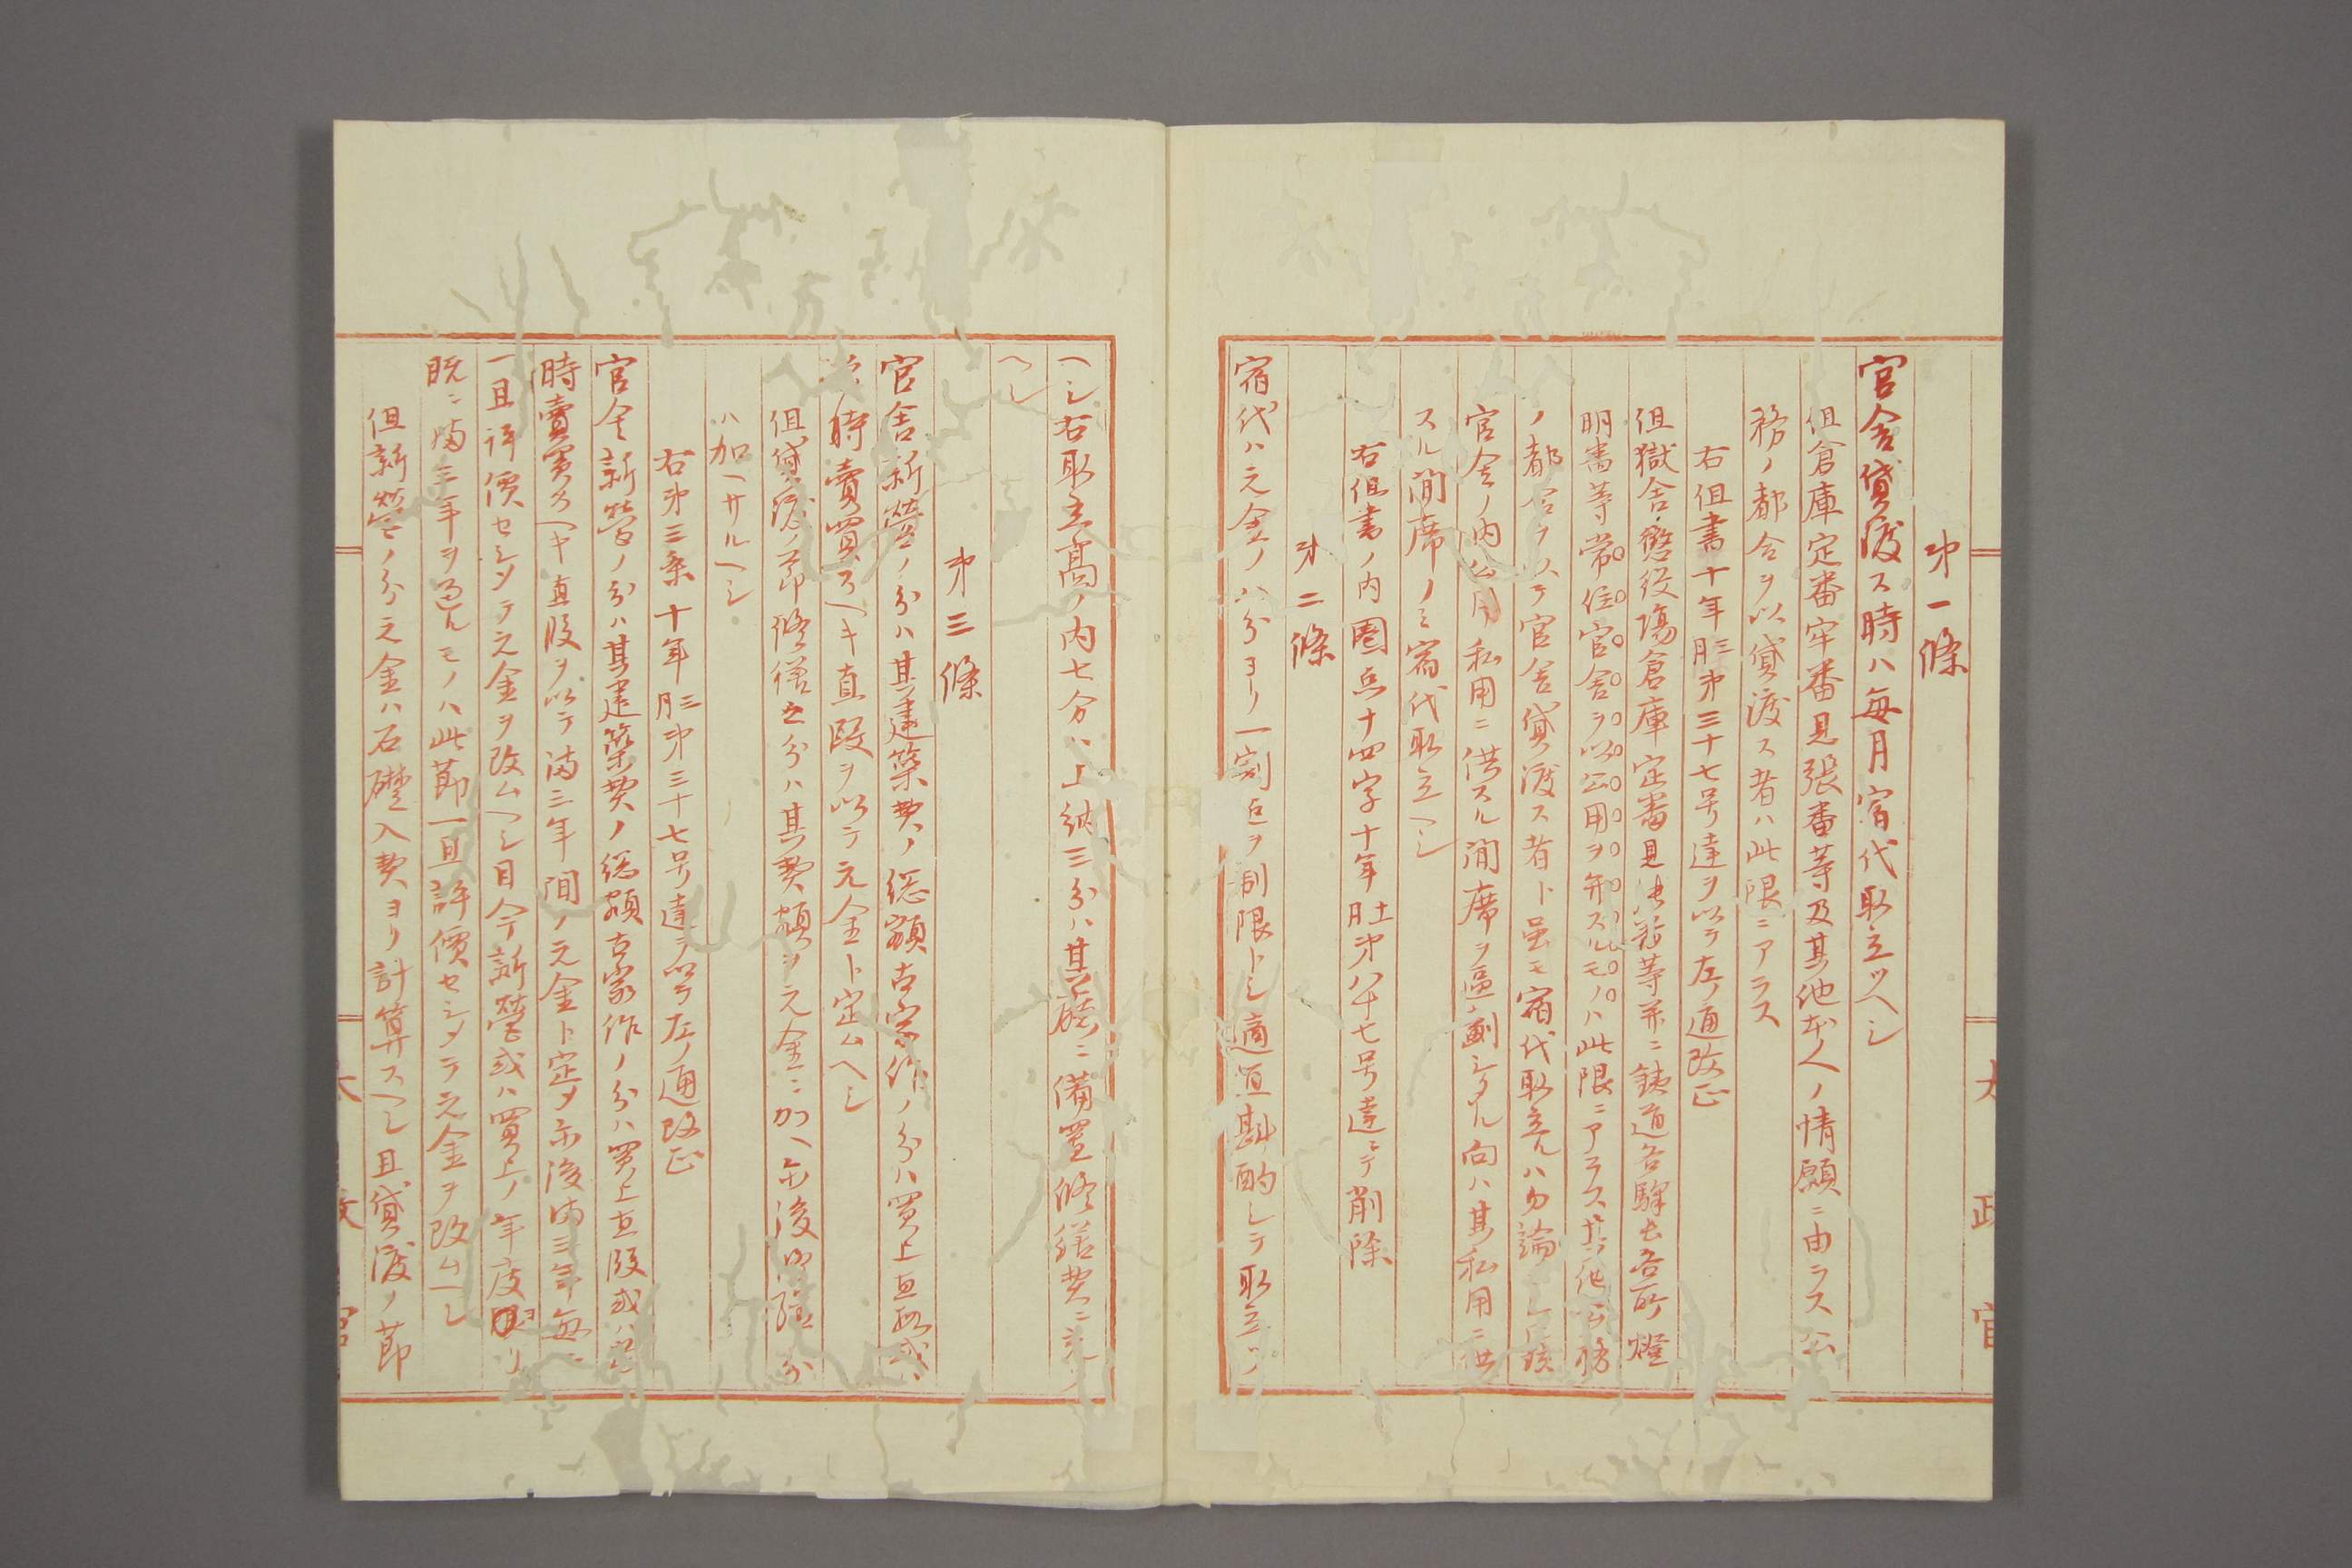 第一條
官舎貸渡ス時ハ毎月宿代取立ツヘシ
但倉庫定番牢番見張番等及其他本人ノ情願ニ由ラス公
務ノ都合ヲ以貸渡ス者ハ此限ニアラス
右但書十年三月第三十七号達ヲ以テ左ノ通改正
但獄舎懲役場倉庫定番見張番等并ニ鉄道各駅長各所燈
明番等常住官舎ヲ以公用ヲ弁スルモノハ此限ニアラス其他公務
ノ都合ヲ以テ官舎貸渡ス者ト虽モ宿代取立ルハ勿論トシ該
官舎ノ内公用私用ニ供スル間席ヲ區劃シタル向ハ其私用ニ供
スル間席ノミ宿代取立ヘシ
右但書ノ内圏点十四字十年十一月第八十七号達ニテ削除
第二條
宿代ハ元金ノ八分ヨリ一割迄ヲ制限トシ適宜斟酌シテ取立ツ
ヘシ右取立高ノ内七分ハ上納三分ハ其廳ニ備置修繕費ニ充ツ
ヘシ
第三條
官舎新營ノ分ハ其建築費ノ総額古家作ノ分ハ買上直段或ハ
當時賣買スヘキ直段ヲ以テ元金ト定ムヘシ
但貸渡ノ節修繕之分ハ其費額ヲ元金ニ加ヘ尓後修繕ノ分
ハ加ヘサルヘシ
右第三条十年三月第三十七号達ヲ以テ左ノ通改正
官舎新營ノ分ハ其建築費ノ総額古家作ノ分ハ買上直段或ハ當
時賣買スヘキ直段ヲ以テ満三年間ノ元金ト定メ尓後満三年毎ニ
一旦評價セシメテ元金ヲ改ムヘシ目今新營或ハ買上ノ年度ヨリ
既ニ満三年ヲ過ルモノハ此節一旦評價セシメテ元金ヲ改ムヘシ
但新營ノ分元金ハ石礎入費ヨリ計算スヘシ且貸渡ノ節
太政官